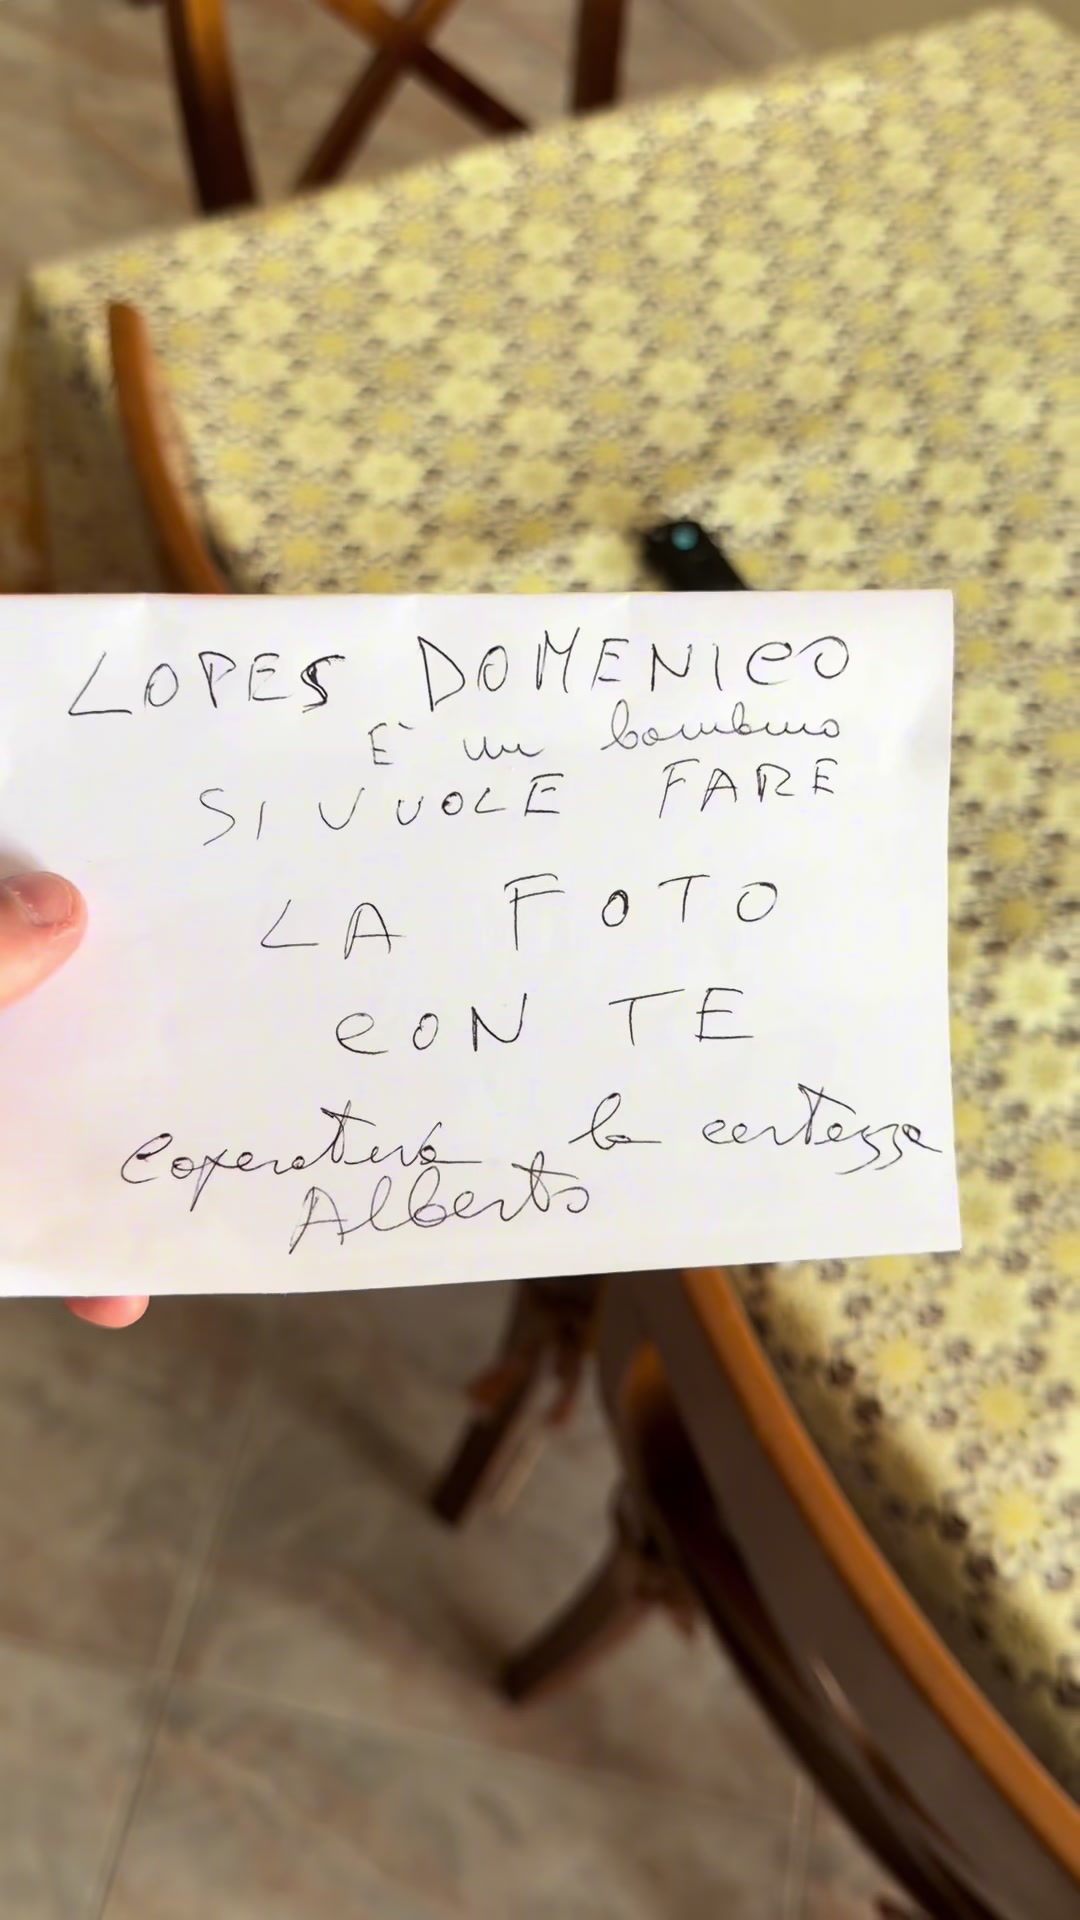 LOPES DOMENICO
E' un bambino
SI VUOLE FARE
LA FOTO
CON TE
Coperativa la certezza
Alberto